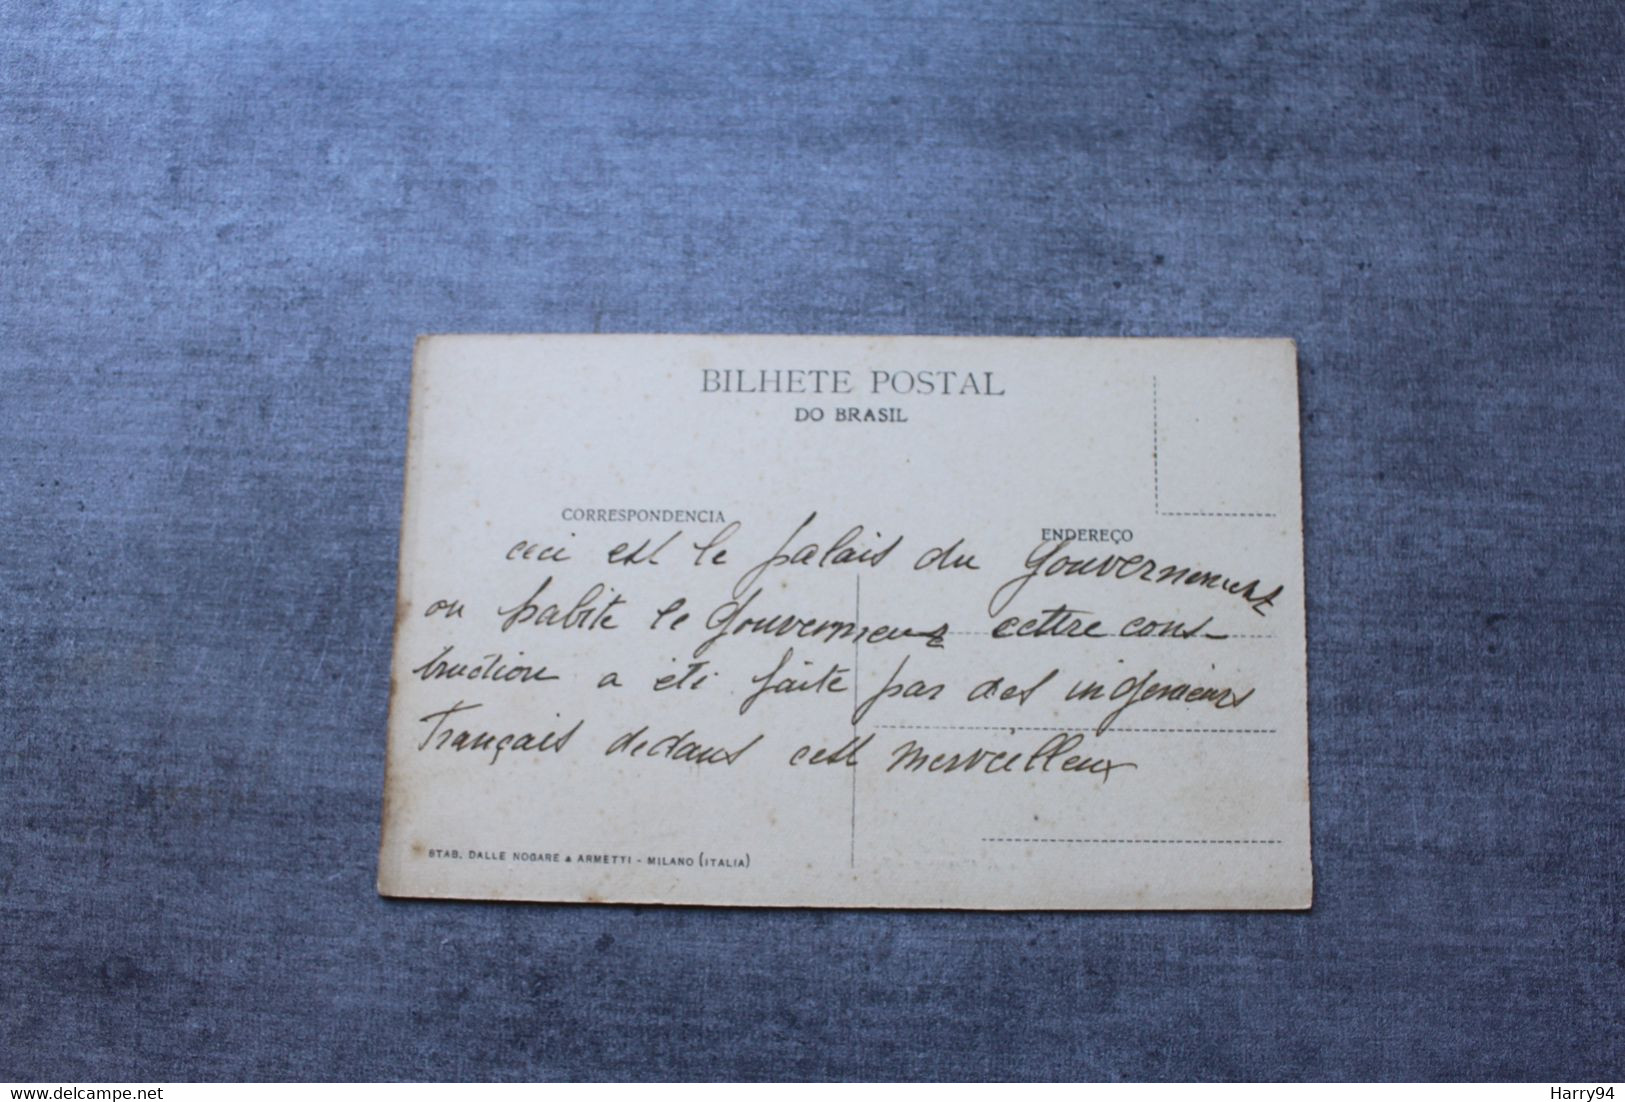 BILHETE POSTAL
DO BRASIL
CORRESPONDENCIA
ENDEREÇO
ceci est le palais du Gouvernement
ou habite le Gouverneur cettre cons-
truction a été faite par des ingenieurs
Français dedans cest merveilleux
STAB. DALLE NOGARE & ARMETTI - MILANO (ITALIA)
www.delcampe.net
Harry94